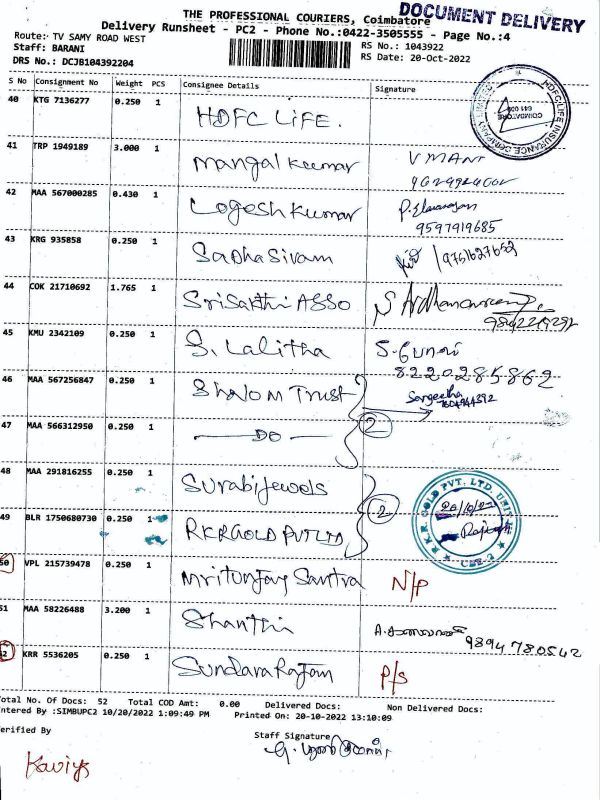 THE PROFESSIONAL COURIERS, Coimbatore
DOCUMENT DELIVERY
Delivery Runsheet - PC2 - Phone No.:0422-3505555 - Page No.:4
Route: TV SAMY ROAD WEST
RS No.: 1043922
Staff: BARANI
RS Date: 20-Oct-2022
DRS No.: DCJB104392204
S No Consignment No Weight PCS Consignee Details Signature
40 KTG 7136277 0.250 1 HDFC LIFE.
HDFC LIFE INSURANCE COMPANY LIMITED
COIMBATORE
41 TRP 1949189 3.000 1 Mangal Kumar V MANI
42 MAA 567000285 0.430 1 Logesh Kumar
9597919685
43 KRG 935858 0.250 1 Sadhasivam 9751627652
44 COK 21710692 1.765 1 Sri Sakthi ASSO
45 KMU 2342109 0.250 1 S. Lalitha
8220285862
46 MAA 567256847 0.250 1 Shalom Trust Sangeetha
47 MAA 566312950 0.250 1 — DO — 2
48 MAA 291816255 0.250 1 Surabi Jewels
49 BLR 1750680730 0.250 1 RKR GOLD PVT LTD 2
R.K.R. GOLD PVT. LTD. UNIT
20/10/22
CBE-2
50 VPL 215739478 0.250 1 Mritunjay Santra N/P
51 MAA 58226488 3.200 1 Shanthi
9894780542
52 KRR 5536205 0.250 1 Sundararajan P/S
Total No. Of Docs: 52 Total COD Amt: 0.00 Delivered Docs: Non Delivered Docs:
Entered By :SIMBUPC2 10/20/2022 1:09:49 PM Printed On: 20-10-2022 13:10:09
Verified By
Staff Signature
Kaviya